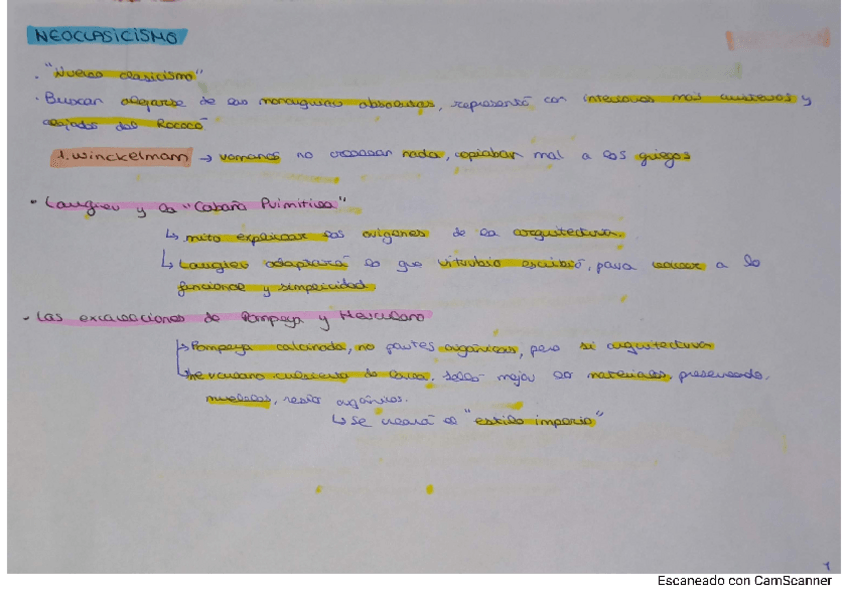 NEOCLASICISMO
. "Nuevo clasicismo"
· Buscan alejarse de las monarquías absolutas, representó con interiores más austeros y
alejados del Rococó
J. Winckelmann → romanos no crearon nada, copiaban mal a los griegos
· Laugier y la "Cabaña Primitiva"
↳ mito explicar los orígenes de la arquitectura.
↳ Laugier adaptará lo que Vitrubio escribió, para volver a lo
funcional y simplicidad.
- Las excavaciones de Pompeya y Herculano
↳ Pompeya calcinada, no partes orgánicas, pero sí arquitectura
↳ Herculano cubierta de lava, selló mejor los materiales, preservando,
muebles, restos orgánicos.
↳ Se creará el "estilo imperio"
1
Escaneado con CamScanner